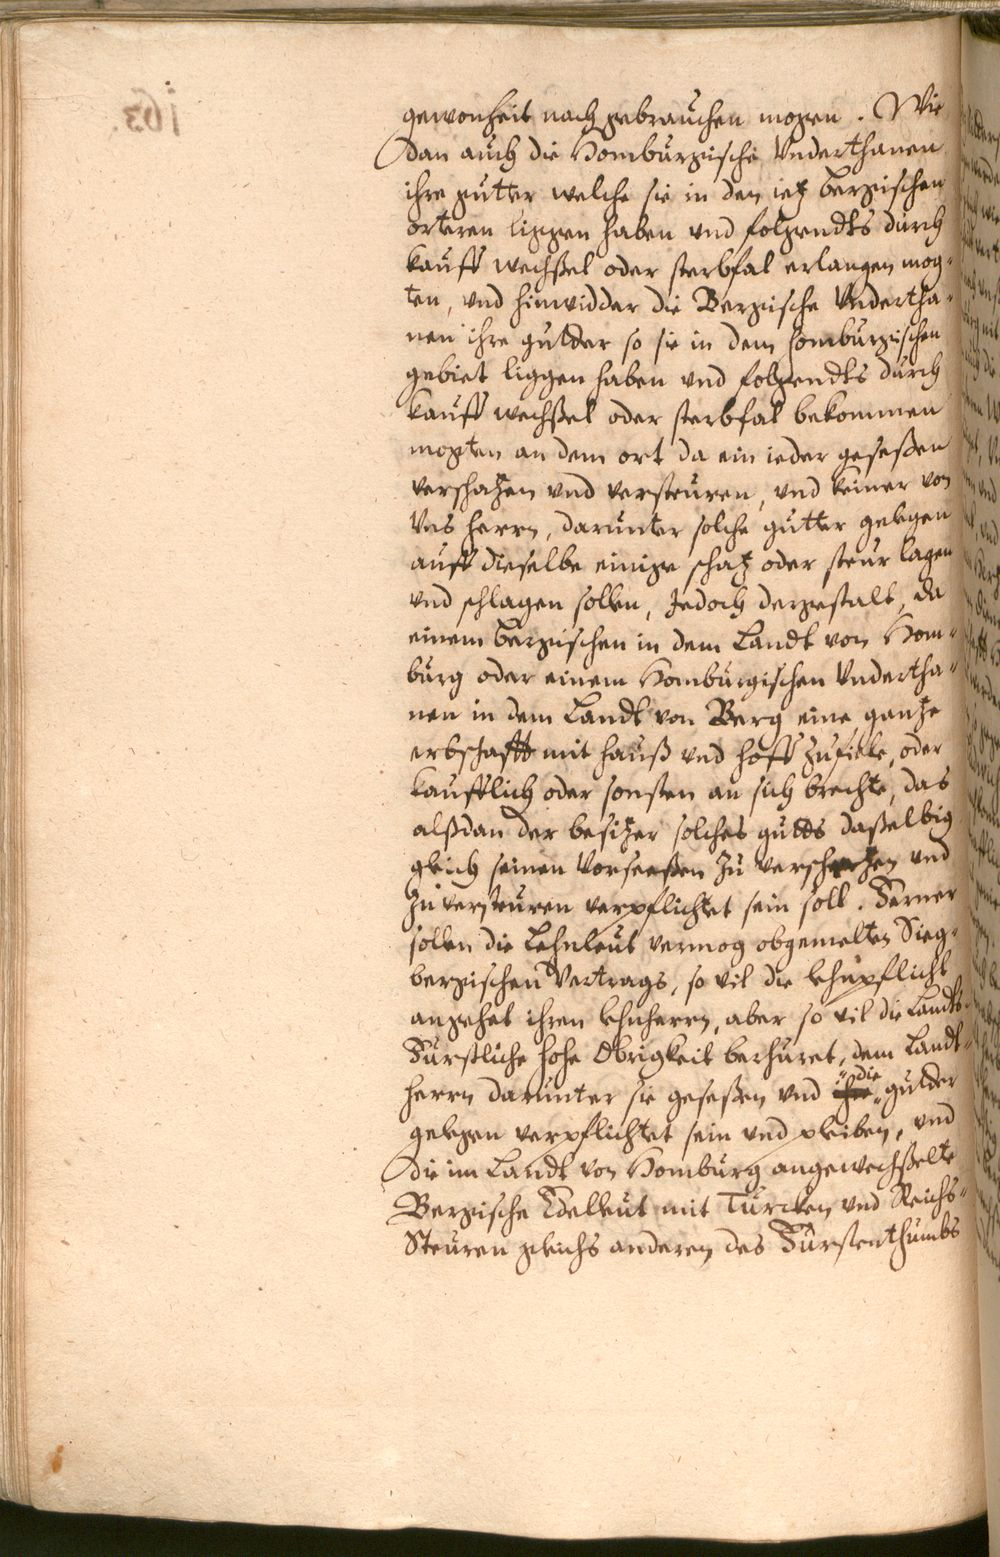 gewonheit nach gebrauchen mogen. Wie
dan auch die Homburgische Vnderthanen
ihre gutter welche sie in den ietz bergischen
orteren liggen haben vnd folgendts durch
kauff wechßel oder sterbfal erlangen mog-
ten, vnd hinwidder die Bergische Vndertha-
nen ihre gutder so sie in dem homburgischen
gebiet liggen haben vnd folgendts durch
kauff wechßel oder sterbfal bekommen
mogten an dem ort da ein ieder geseßen
verschatzen vnd versteuren, vnd keiner von
Vns herrn, darunter solche gutter gelegen
auff dieselbe einige schatz oder steur lagen
vnd schlagen sollen, Jedoch dergestalt, da
einem bergischen in dem Landt von Hom-
burg oder einem Homburgischen Vndertha-
nen in dem Landt von Berg eine gantze
erbschafft mit hauß vnd hoff zufiele, oder
kaufflich oder sonsten an sich brechte, das
alßdan der besitzer solches gutds daßelbig
gleich seinen Vorseeßen zu verschatzen vnd
zu versteuren verpflichtet sein soll. Ferner
sollen die Lehnleut vermog obgemelten Sieg-
bergischen Vertrags, so vil die lehnpflicht
angehet ihren lehnherrn, aber so vil die Landts
Furstliche hohe Obrigkeit berhuret, dem Landt-
herrn darunter sie geseßen vnd die gutder
gelegen verpflichtet sein vnd pleiben, vnd
die im Landt von Homburg angewechßelte
Bergische Edelleut mit Turcken vnd Reichs-
Steuren gleichs anderen des Furstenthumbs